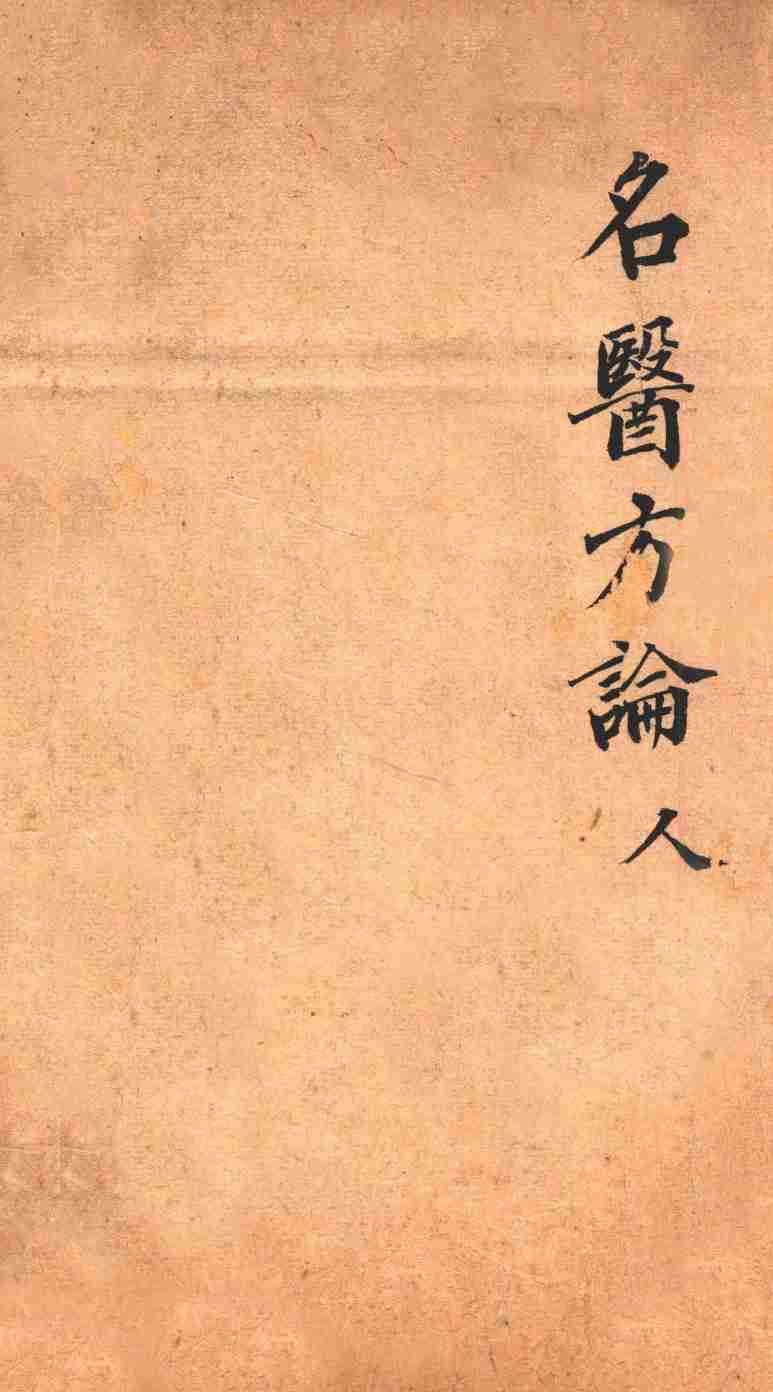 名醫方論人